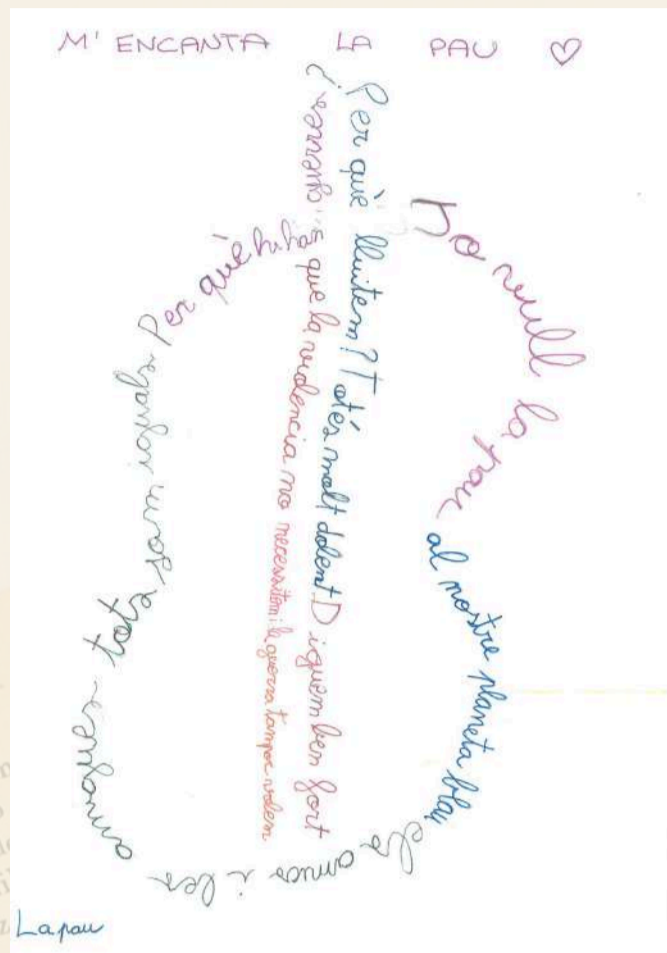 M' ENCANTA LA PAU ♡
Jo vull la pau
al nostre planeta blau
els amics i les
amigues
tots som
Per què hi ha
Per què lluitem? Tot és molt dolent Diguem ben fort
que la violencia no necessitem i la guerra tampoc volem
La pau